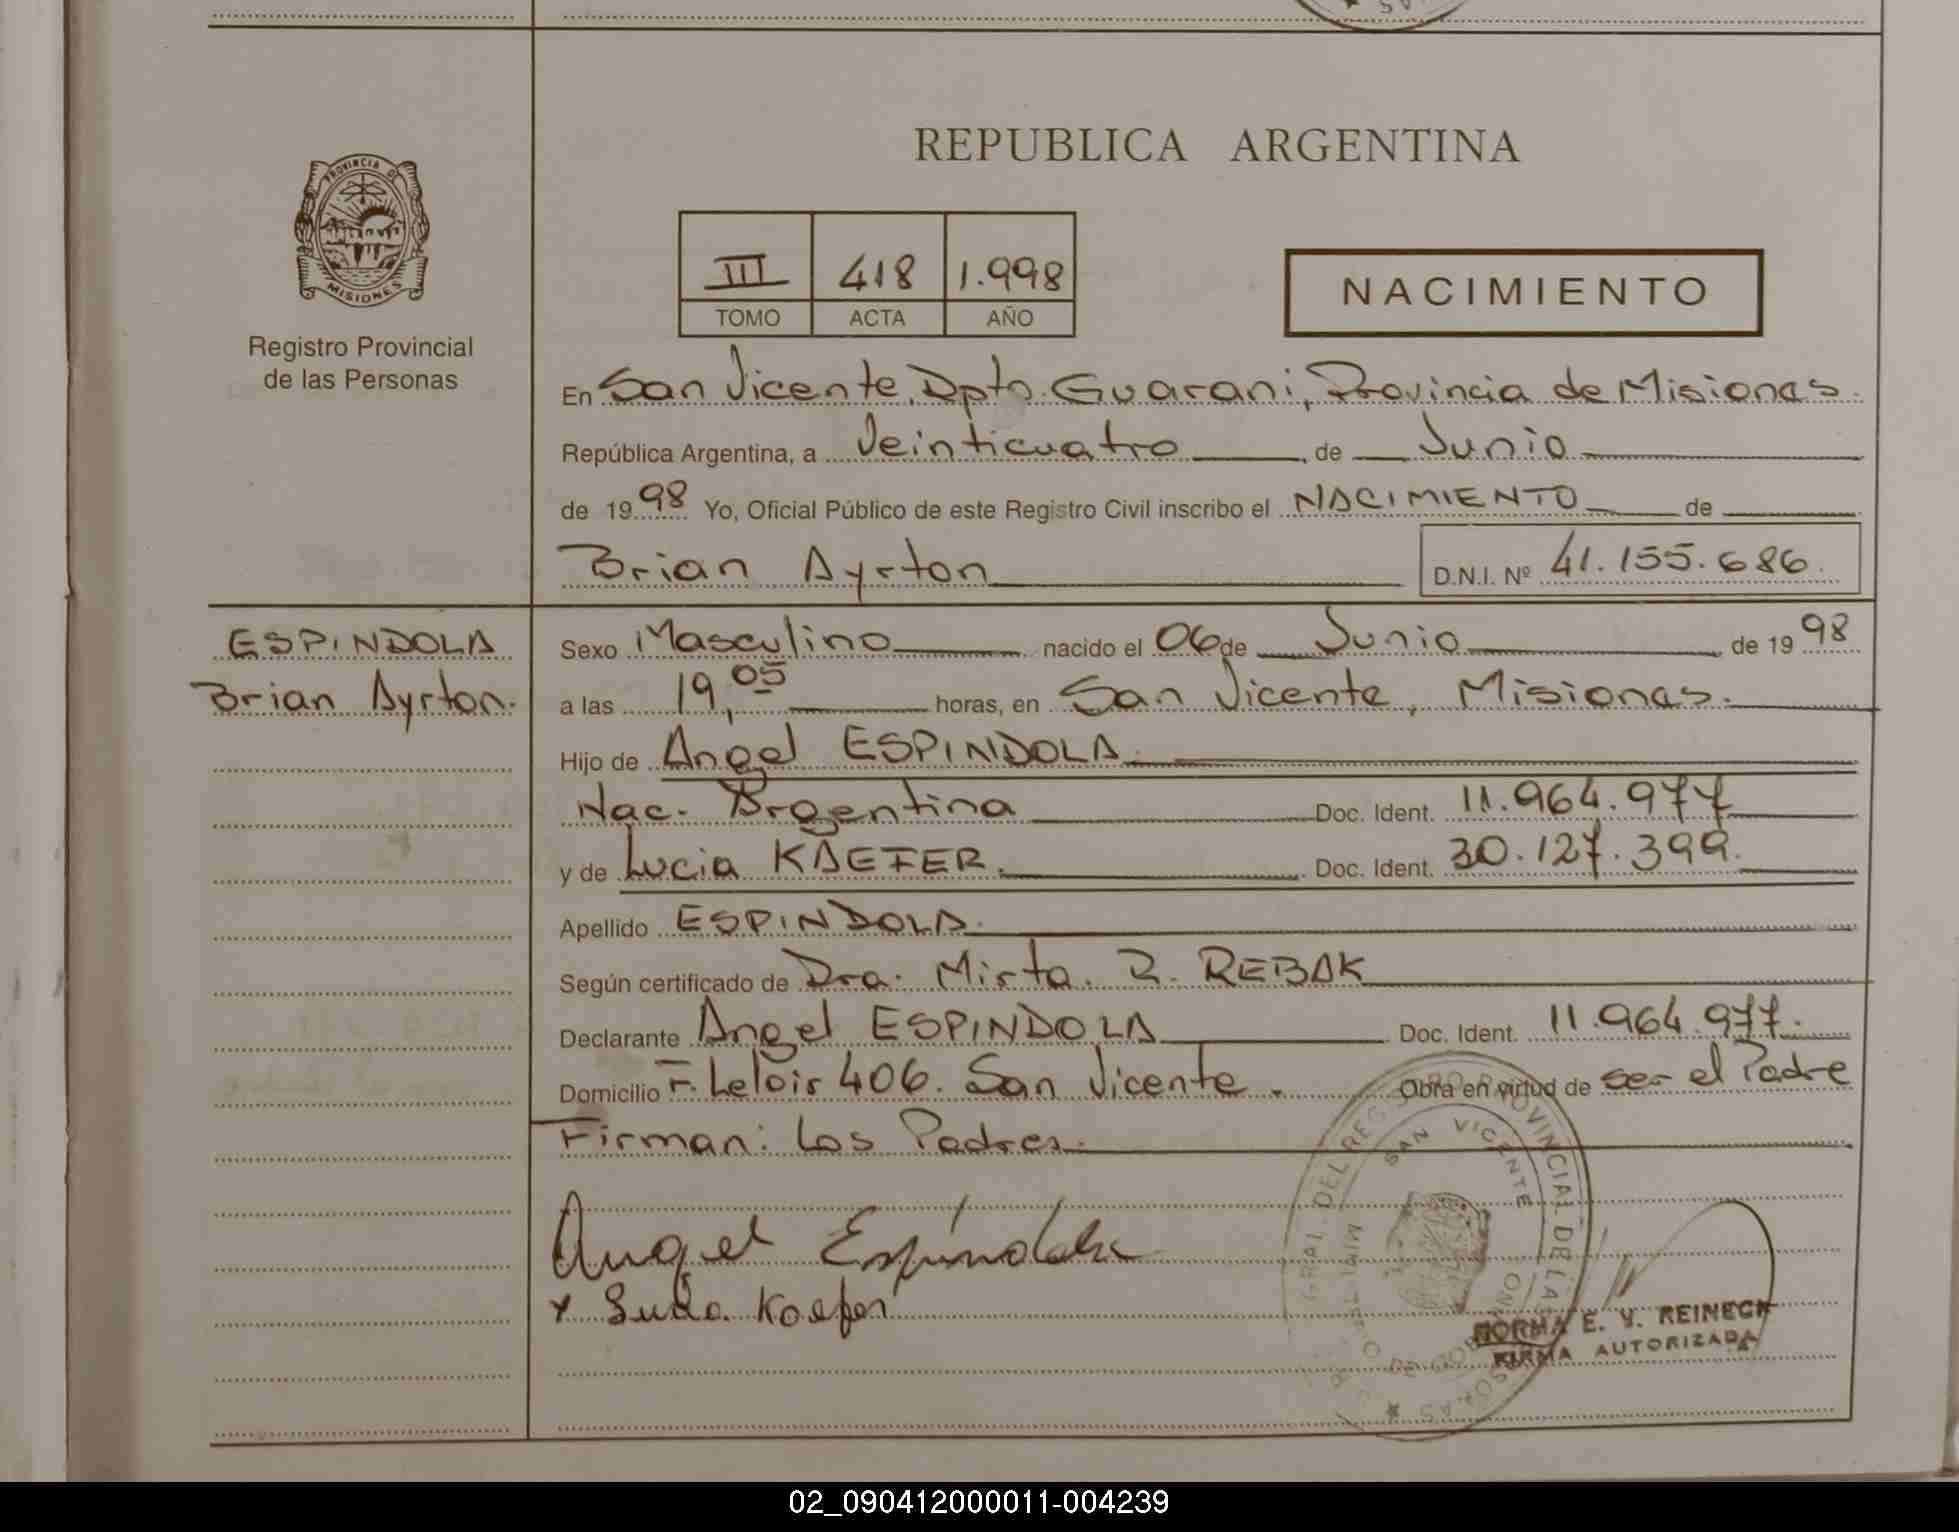 REPUBLICA ARGENTINA
PROVINCIA DE MISIONES
Registro Provincial
de las Personas
III 418 1.998
TOMO ACTA AÑO
NACIMIENTO
En San Vicente, Dpto. Guarani, Provincia de Misiones.
República Argentina, a Veinticuatro de Junio
de 1998 Yo, Oficial Público de este Registro Civil inscribo el NACIMIENTO de
Brian Ayrton D.N.I. Nº 41.155.686.
ESPINDOLA
Brian Ayrton.
Sexo Masculino nacido el 06 de Junio de 1998
a las 19,05 horas, en San Vicente, Misiones.
Hijo de Angel ESPINDOLA.
Nac. Argentina Doc. Ident. 11.964.977
y de Lucia KAEFER. Doc. Ident. 30.127.399.
Apellido ESPINDOLA.
Según certificado de Dra. Mirta. R. REBAK
Declarante Angel ESPINDOLA Doc. Ident. 11.964.977.
Domicilio F. Leloir 406. San Vicente. Obra en virtud de ser el Padre
Firman: Los Padres.
Angel Espindola
x Lucia Kaefer
GRAL. DEL REGISTRO PROVINCIAL DE LAS PERSONAS
SAN VICENTE
MINISTERIO DE GOBIERNO
NORMA E. V. REINECK
FIRMA AUTORIZADA
02_090412000011-004239